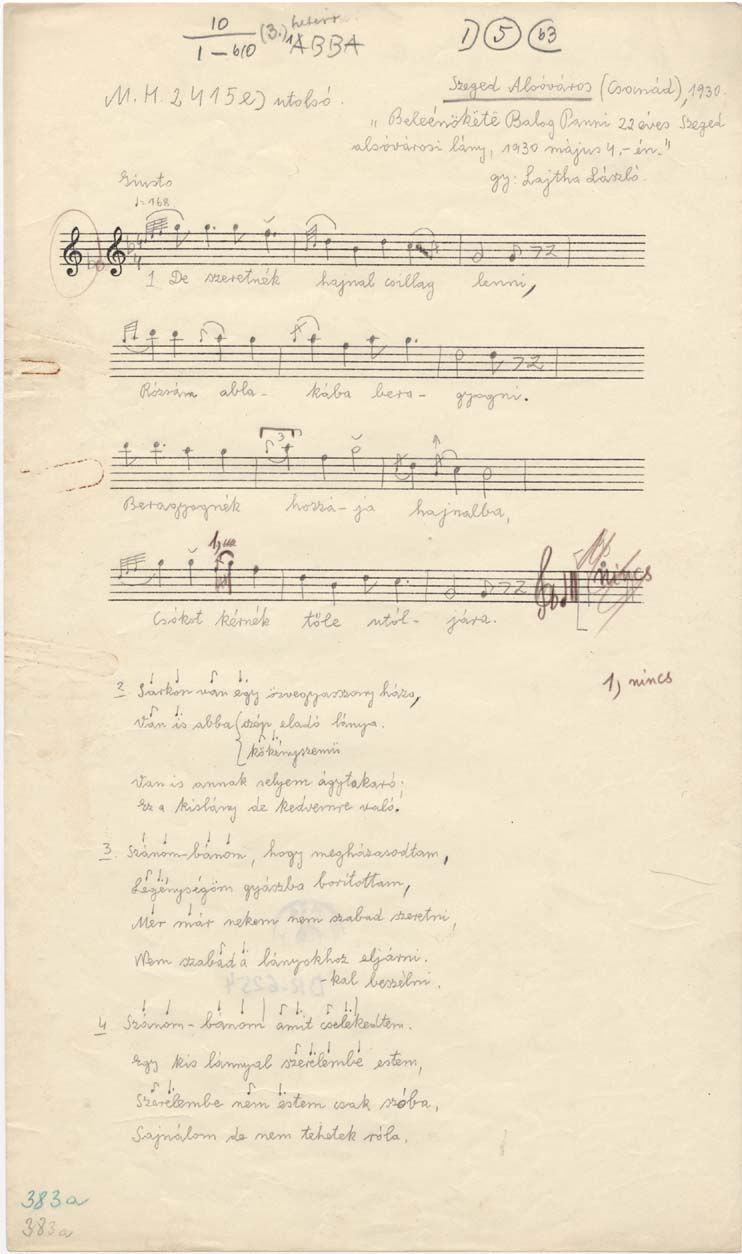 10
1 – 610 (3.)
ABBA
I) 5 63
M. H. 2415e) utolsó.
Szeged Alsóváros (Csanád), 1930.
"Beleénökëtë Balog Panni 22 éves Szeged
alsóvárosi lány, 1930 május 4.-én."
gy: Lajtha László.
Giusto
♩=168
1 De szeretnék hajnal csillag lenni,
Rózsám abla- kába bera- gyogni.
3
Beragyognék hozzá- ja hajnalba,
1,
nincs
Csókot kérnék tőle utól- jára.
1, nincs
2 Sarkon van ëgy özvegyasszony háza,
Van is abba szép eladó lánya.
kökényszemű
Van is annak selyem ágytakaró;
Ez a kislány de kedvemre való.
3. Szánom-bánom, hogy megházasodtam,
Legénységöm gyászba borítottam,
Mer már nekem nem szabad szeretni,
Nem szabad a lányokhoz eljárni.
-kal beszélni.
4 Szánom-bánom amit cselekedtem.
Egy kis lánnyal szerelembe estem,
Szerelembe nem estem csak szóba,
Sajnálom de nem tehetek róla.
DR-6254
383a
383a